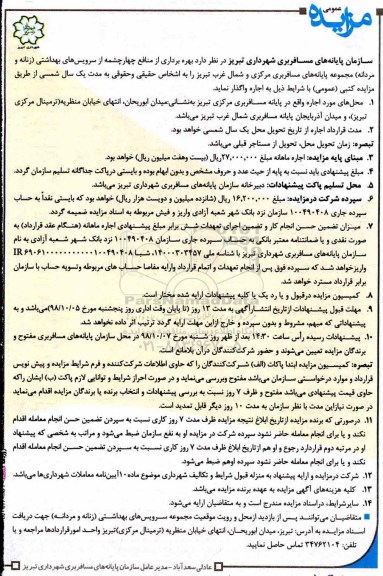 عمومی
مزایده
شهرداری تبریز
سازمان پایانه‌های مسافربری شهرداری تبریز در نظر دارد بهره برداری از منافع چهارچشمه از سرویس‌های بهداشتی (زنانه و
مردانه) مجموعه پایانه‌های مسافربری مرکزی و شمال غرب تبریز را به اشخاص حقیقی وحقوقی به مدت یک سال شمسی از طریق
مزایده کتبی (عمومی) با شرایط ذیل به اجاره واگذار نماید.
۱. محل‌های مورد اجاره واقع در پایانه مسافربری مرکزی تبریز به‌نشانی:میدان ابوریحان، انتهای خیابان منظریه(ترمینال مرکزی
تبریز)، و میدان آذربایجان پایانه مسافربری شمال غرب تبریز می‌باشد.
۲. مدت قرارداد اجاره از تاریخ تحویل محل یک سال شمسی خواهد بود.
تبصره: زمان تحویل محل، تحویل از مستاجر قبلی می‌باشد.
۳. مبنای پایه مزایده: اجاره ماهانه مبلغ ۲۷,۰۰۰,۰۰۰ریال (بیست وهفت میلیون ریال) خواهد بود.
۴. مبلغ پیشنهادی باید نسبت به پایه از حیث عدد و حروف مشخص و بدون ابهام بوده و بایستی درپاکت جداگانه تسلیم سازمان گردد.
۵. محل تسلیم پاکت پیشنهادات: دبیرخانه سازمان پایانه‌های مسافربری شهرداری تبریز می‌باشد.
۶. سپرده شرکت درمزایده: مبلغ ۱۶,۲۰۰,۰۰۰ ریال (شانزده میلیون و دویست هزار ریال) خواهد بود که بایستی نقداً به حساب
سپرده جاری ۱۰۰۴۹۰۴۰۸ سازمان نزد بانک شهر شعبه آزادی واریز و فیش مربوطه به اسناد مزایده ضمیمه گردد.
۷. میزان تضمین حسن انجام کار و تضمین اجرای تعهدات شش برابر مبلغ پیشنهادی اجاره ماهانه (هنگام عقد قرارداد) به
صورت نقدی و یا ضمانتنامه معتبر بانکی به حساب سپرده جاری سازمان ۱۰۰۴۹۰۴۰۸ نزد بانک شهر شعبه آزادی به نام
سازمان پایانه‌های مسافربری شهرداری تبریز با شناسه ملی
واریزخواهد شد که سپرده فوق پس از انجام تعهدات و اتمام قرارداد وارایه مفاصا حساب های مربوطه وتسویه حساب با سازمان
برابر قرارداد مسترد خواهد شد.
۸. کمیسیون مزایده درقبول و یا رد یک یا کلیه پیشنهادات ارایه شده مختار است.
۹. مهلت قبول پیشنهادات ازتاریخ انتشارآگهی به مدت ۱۳ روز (تا پایان وقت اداری روز پنجشنبه مورخ ۹۸/۱۰/۰۵)می‌باشد و به
پیشنهاداتی که مبهم، مشروط و بدون سپرده و خارج ازاین مهلت ارایه گردد ترتیب اثر داده نخواهد شد.
۱۰. پیشنهادات رسیده رأس ساعت ۱۴:۳۰ بعد از ظهر روز شنبه مورخ ۹۸/۱۰/۰۷ در محل سازمان پایانه‌های مسافربری مفتوح و
برندگان مزایده تعیین می‌شوند و حضور شرکت‌کنندگان درآن بلامانع است.
تبصره: کمیسیون مزایده ابتدا پاکات (الف) شـرکت‌کنندگان را که حاوی اطلاعات شرکت‌کننده و فرم شرایط مزایده و پیش نویس
قرارداد و موارد درخواستی سازمان می‌باشد مفتوح وبررسی می‌نماید و در صورت احراز شرایط و توانایی لازم پاکت (ب) ایشان راکه
حاوی قیمت پیشنهادی می‌باشد مفتوح و ظرف ۷ روز نسبت به بررسی پیشنهادات و انتخاب برنده یا برندگان مزایده اقدام می‌نماید
در صورت نیازاین مدت با نظر سازمان به مدت ۱۰ روز دیگر قابل تمدید است.
۱۱. درصورتی که برنده مزایده ازتاریخ ابلاغ نتیجه مزایده ظرف مدت ۷ روز کاری نسبت به سپردن تضمین حسن انجام معامله اقدام
نکند و یا برای انجام معامله حاضر نشود سپرده شرکت در مزایده او به نفع سازمان ضبط می‌شود و مراتب به شخصی که پیشنهاد
او در مرتبه دوم قراردارد رجوع و او هم ازتاریخ ابلاغ ظرف مدت ۷ روز کاری نسبت به سپردن تضمین حسن انجام معامله اقدام
نکند و یا برای انجام معامله حاضر نشود سپرده اوهم ضبط می‌شود.
۱۲. شرکت درمزایده و ارایه پیشنهاد به منزله قبول شرایط و تکالیف شهرداری موضوع ماده ۱۰آیین‌نامه معاملات شهرداری‌ها می‌باشد.
۱۳. کلیه هزینه‌های آگهی مزایده به عهده برنده مزایده می‌باشد.
۱۴. سایرشرایط، دراسناد مزایده مندرج است و به متقاضیان ارایه می‌شود.
متقاضیان می‌توانند پس از بازدید ازمحل و رویت موقعیت مجموعه سرویس‌های بهداشتی (زنانه و مردانه) جهت دریافت
اسناد مزایده به آدرس: تبریز، میدان ابوریحان، انتهای خیابان منظریه (ترمینال مرکزی)تبریز واحد امورقراردادها مراجعه و یا
تلفن: ۳۴۷۶۲۱۰۴ تماس حاصل نمایید.
عادلی سعدآباد - مدیرعامل سازمان پایانه‌های مسافربری شهرداری تبریز